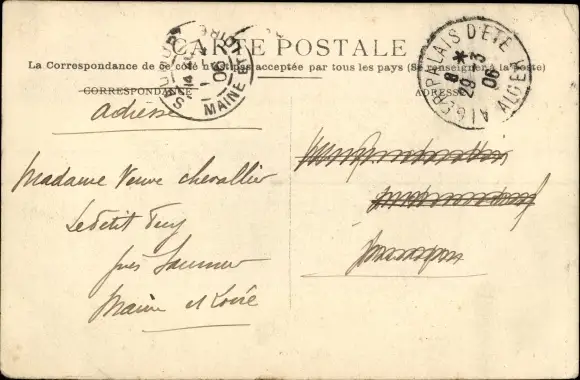 CARTE POSTALE
La Correspondance de ce côté n'est pas acceptée par tous les pays (Se renseigner à la Poste)
CORRESPONDANCE
ADRESSE
adresse
Madame Veuve Chevallier
Le Petit Puy
près Saumur
Maine et Loire
SAUMUR
MAINE-ET-LOIRE
06
ALGER-PALAIS D'ÉTÉ
*
8
29 -3
06
ALGER